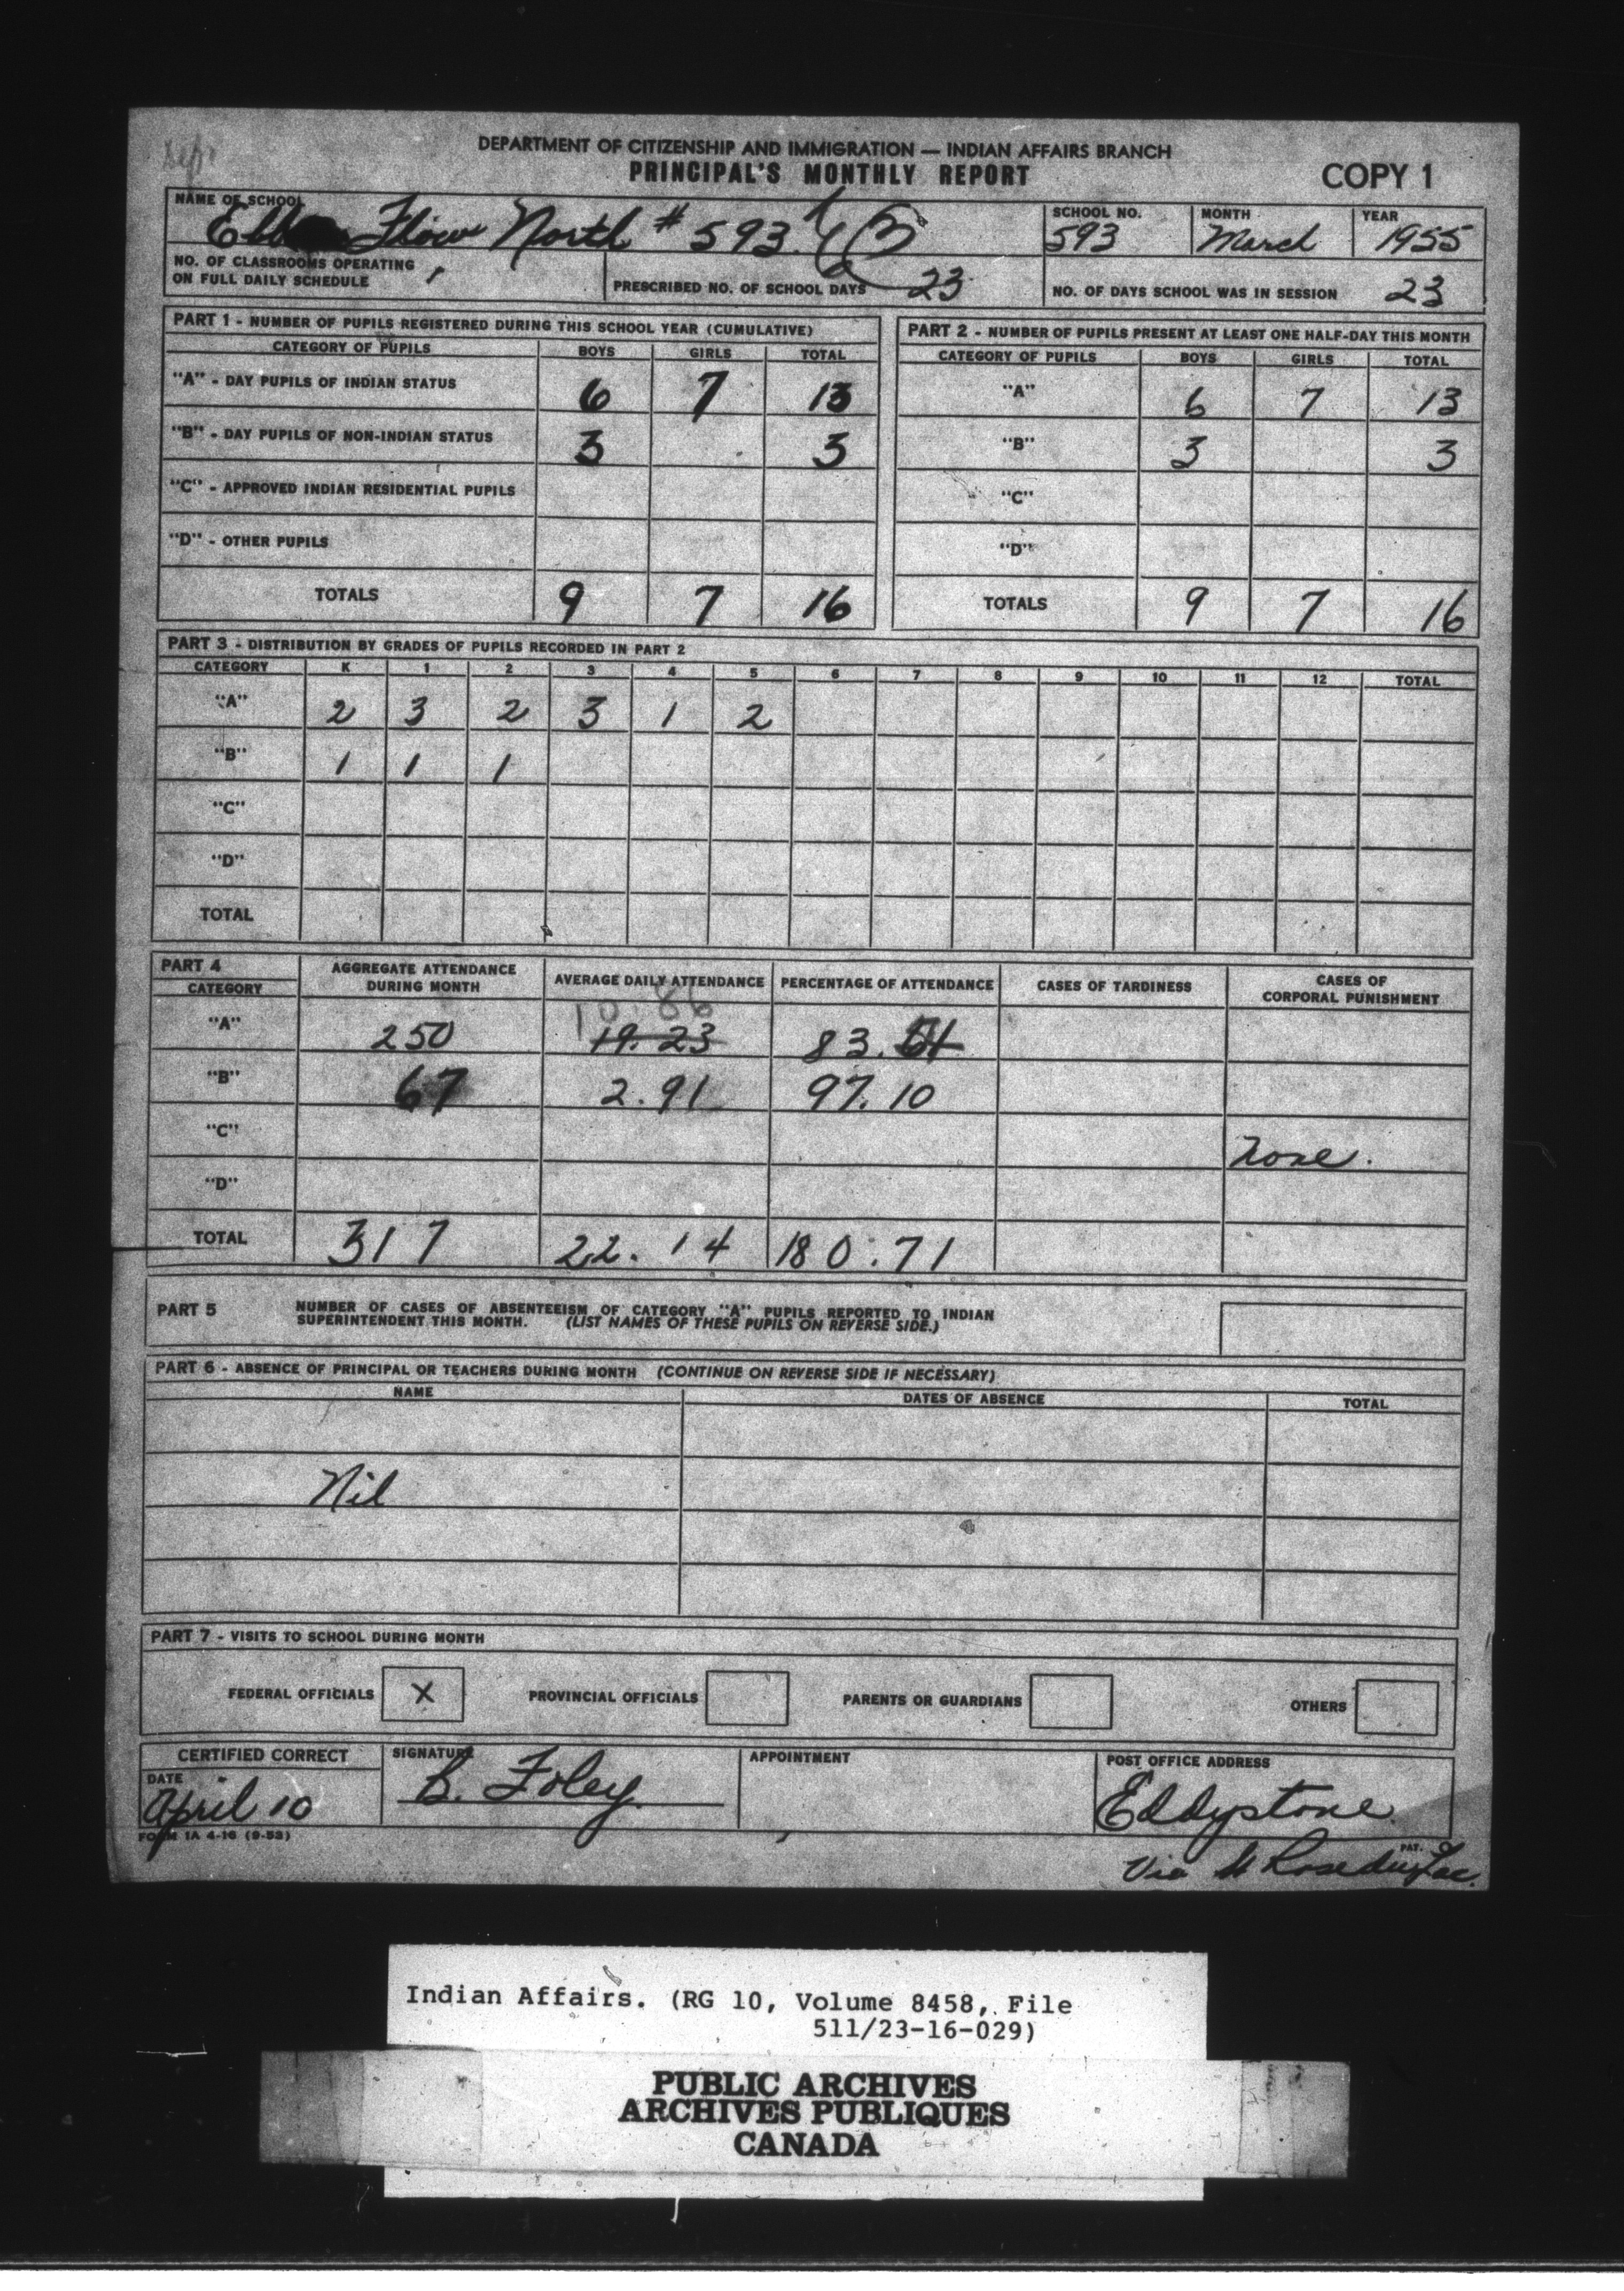 DEPARTMENT OF CITIZENSHIP AND IMMIGRATION — INDIAN AFFAIRS BRANCH
PRINCIPAL'S MONTHLY REPORT
COPY 1
NAME OF SCHOOL
Ebb Flow North # 593
SCHOOL NO.
593
MONTH
March
YEAR
1955
NO. OF CLASSROOMS OPERATING
ON FULL DAILY SCHEDULE 1
PRESCRIBED NO. OF SCHOOL DAYS 23
NO. OF DAYS SCHOOL WAS IN SESSION 23
PART 1 - NUMBER OF PUPILS REGISTERED DURING THIS SCHOOL YEAR (CUMULATIVE)
CATEGORY OF PUPILS BOYS GIRLS TOTAL
"A" - DAY PUPILS OF INDIAN STATUS 6 7 13
"B" - DAY PUPILS OF NON-INDIAN STATUS 3 3
"C" - APPROVED INDIAN RESIDENTIAL PUPILS
"D" - OTHER PUPILS
TOTALS 9 7 16
PART 2 - NUMBER OF PUPILS PRESENT AT LEAST ONE HALF-DAY THIS MONTH
CATEGORY OF PUPILS BOYS GIRLS TOTAL
"A" 6 7 13
"B" 3 3
"C"
"D"
TOTALS 9 7 16
PART 3 - DISTRIBUTION BY GRADES OF PUPILS RECORDED IN PART 2
CATEGORY K 1 2 3 4 5 6 7 8 9 10 11 12 TOTAL
"A" 2 3 2 3 1 2
"B" 1 1 1
"C"
"D"
TOTAL
PART 4
CATEGORY
AGGREGATE ATTENDANCE
DURING MONTH
AVERAGE DAILY ATTENDANCE
PERCENTAGE OF ATTENDANCE
CASES OF TARDINESS
CASES OF
CORPORAL PUNISHMENT
10.86
"A" 250 19.23 83.61
"B" 67 2.91 97.10
"C" None.
"D"
TOTAL 317 22.14 180.71
PART 5 NUMBER OF CASES OF ABSENTEEISM OF CATEGORY "A" PUPILS REPORTED TO INDIAN
SUPERINTENDENT THIS MONTH. (LIST NAMES OF THESE PUPILS ON REVERSE SIDE.)
PART 6 - ABSENCE OF PRINCIPAL OR TEACHERS DURING MONTH (CONTINUE ON REVERSE SIDE IF NECESSARY)
NAME DATES OF ABSENCE TOTAL
Nil
PART 7 - VISITS TO SCHOOL DURING MONTH
FEDERAL OFFICIALS X PROVINCIAL OFFICIALS PARENTS OR GUARDIANS OTHERS
CERTIFIED CORRECT
DATE
April 10
SIGNATURE
B. Foley
APPOINTMENT
POST OFFICE ADDRESS
Eddystone
FORM 1A 4-16 (9-53)
PAT.
Via Rose du Lac.
Indian Affairs. (RG 10, Volume 8458, File
511/23-16-029)
PUBLIC ARCHIVES
ARCHIVES PUBLIQUES
CANADA